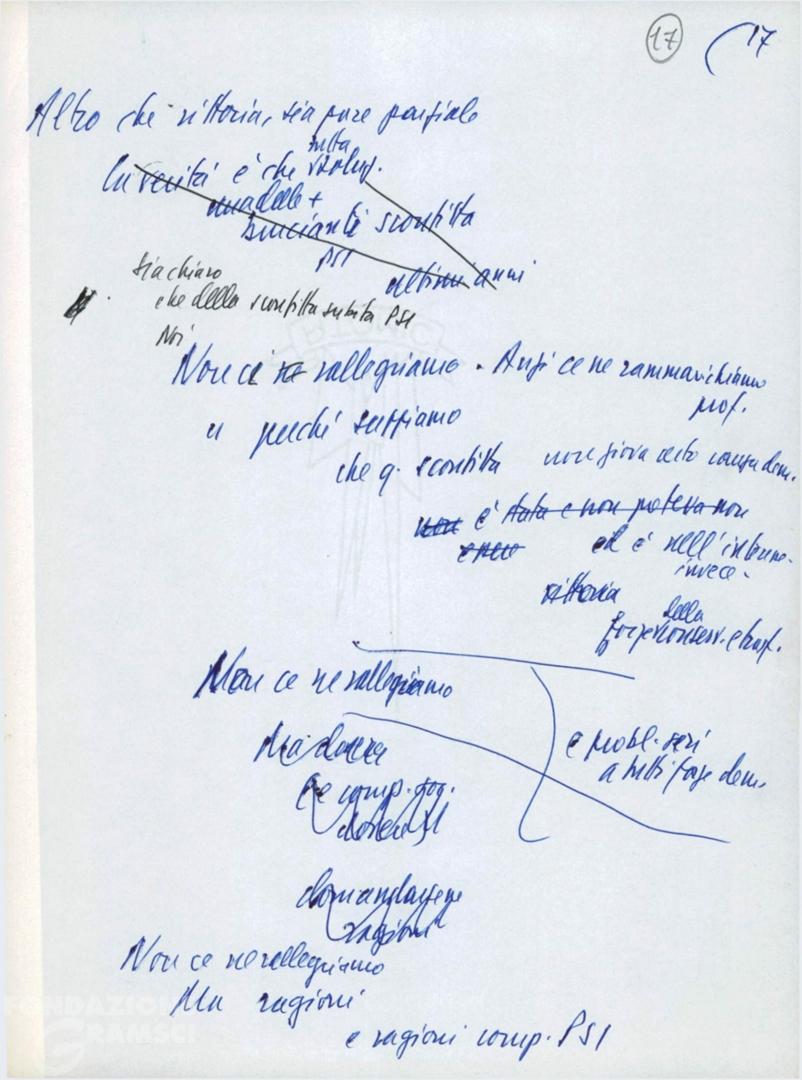 17
17
Altro che vittoria, sia pure parziale
In verità è che
una delle +
brucianti sconfitta
PSI
ultimi anni
sia chiaro
che della sconfitta subita PSI
Noi
Non ci ne rallegriamo. Anzi ce ne rammarichiamo
prof.
perché sappiamo
che q. sconfitta non giova certo causa dem.
non è stata e non poteva non
ed è nell'interesse
invece
vittoria
della
forze conserv. e
Non ce ne rallegriamo
e probl. seri
a tutti forze dem.
Ma
comp.
PSI
domandarsene
ragioni
Non ce ne rallegriamo
Ma ragioni
e ragioni comp. PSI
FONDAZIONE
GRAMSCI